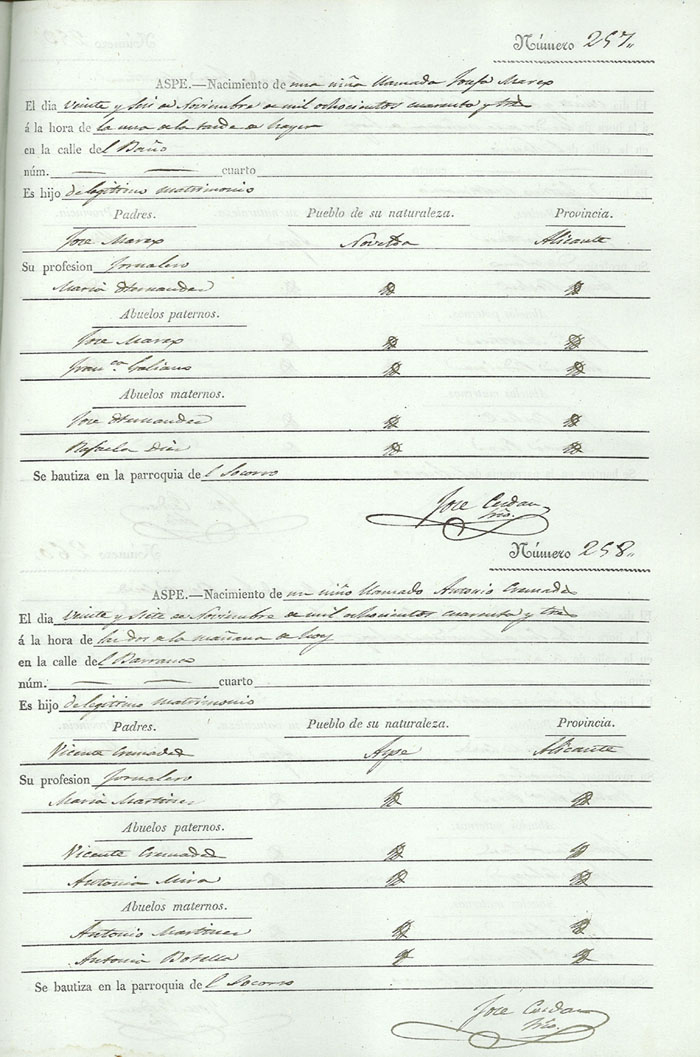 Número 257,,
ASPE.—Nacimiento de una niña llamada Josefa Marex
El dia veinte y seis de Noviembre de mil ochocientos cuarenta y tres
á la hora de la una de la tarde de hayer
en la calle del Baño
núm. — — cuarto
Es hijo de legitimo matrimonio
Padres. Pueblo de su naturaleza. Provincia.
Jose Marex Novelda Alicante
Su profesion Jornalero
Maria Hernandez
Abuelos paternos.
Jose Marex
Fran.ca Galiano
Abuelos maternos.
Jose Hernandez
Rafaela Diez
Se bautiza en la parroquia del Socorro
Jose Cerdan
Srio.
Número 258,,
ASPE.—Nacimiento de un niño llamado Antonio Cremades
El dia veinte y siete de Noviembre de mil ochocientos cuarenta y tres
á la hora de las dos de la mañana de hoy
en la calle del Barranco
núm. — — cuarto
Es hijo de legitimo matrimonio
Padres. Pueblo de su naturaleza. Provincia.
Vicente Cremades Aspe Alicante
Su profesion Jornalero
Maria Martinez
Abuelos paternos.
Vicente Cremades
Antonia Mira
Abuelos maternos.
Antonio Martinez
Antonia Botella
Se bautiza en la parroquia del Socorro
Jose Cerdan
Srio.